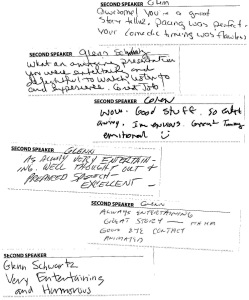 SECOND SPEAKER Glenn
Awesome! You're a great
story teller, pacing was perfect,
your comedic timing was flawless
SECOND SPEAKER Glenn
What an amazing presentation
you were entertaining and
delightful to watch, listen to
and experience. Great Job
SECOND SPEAKER Glenn
Wow. Good stuff. So
funny. I'm envious. Great Timing
emotional
SECOND SPEAKER GLENN
AS ALWAYS VERY ENTERTAIN-
ING. WELL THOUGHT OUT +
PREPARED SPEECH-
EXCELLENT -
SECOND SPEAKER GLENN
ALWAYS ENTERTAINING
GREAT STORY - HA HA
GOOD EYE CONTACT
ANIMATED
SECOND SPEAKER
Glenn Schwartz
Very Entertaining
and Humorous